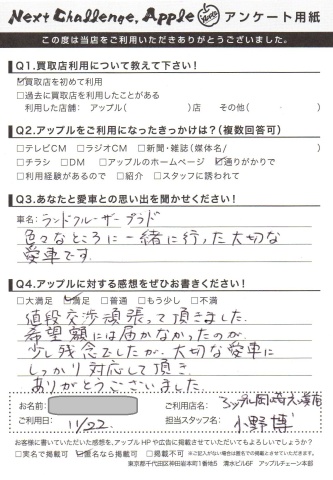 Next Challenge, Apple Auto アンケート用紙
この度は当店をご利用いただきありがとうございました。
Q1.買取店利用について教えて下さい!
☑買取店を初めて利用
□過去に買取店を利用したことがある
利用した店舗: アップル( )店 その他( )
Q2.アップルをご利用になったきっかけは?(複数回答可)
□テレビCM □ラジオCM □新聞・雑誌(媒体名/ )
□チラシ □DM □アップルのホームページ ☑通りがかりで
□利用経験があるので □紹介 □スタッフに誘われて
Q3.あなたと愛車との思い出を聞かせください!
車名:ランドクルーザープラド
色々なところに一緒に行った大切な
愛車です.
Q4.アップルに対する感想をぜひお書きください!
□大満足 ☑満足 □普通 □もう少し □不満
値段交渉頑張って頂きました.
希望額には届かなかったのが
少し残念でしたが、大切な愛車に
しっかり対応して頂き
ありがとうございました
お名前:
ご利用店名: アップル岡崎
ご利用日: 11/22.
担当スタッフ名: 小野 博
お客様に書いていただいた感想を、アップルHPや広告に掲載させていただいてもよろしいでしょうか?
□実名で掲載可 ☑匿名なら掲載可 □掲載不可 ※ご記入がない場合は匿名での掲載とさせていただきます。
東京都千代田区神田岩本町1番地5 清水ビル6F アップルチェーン本部